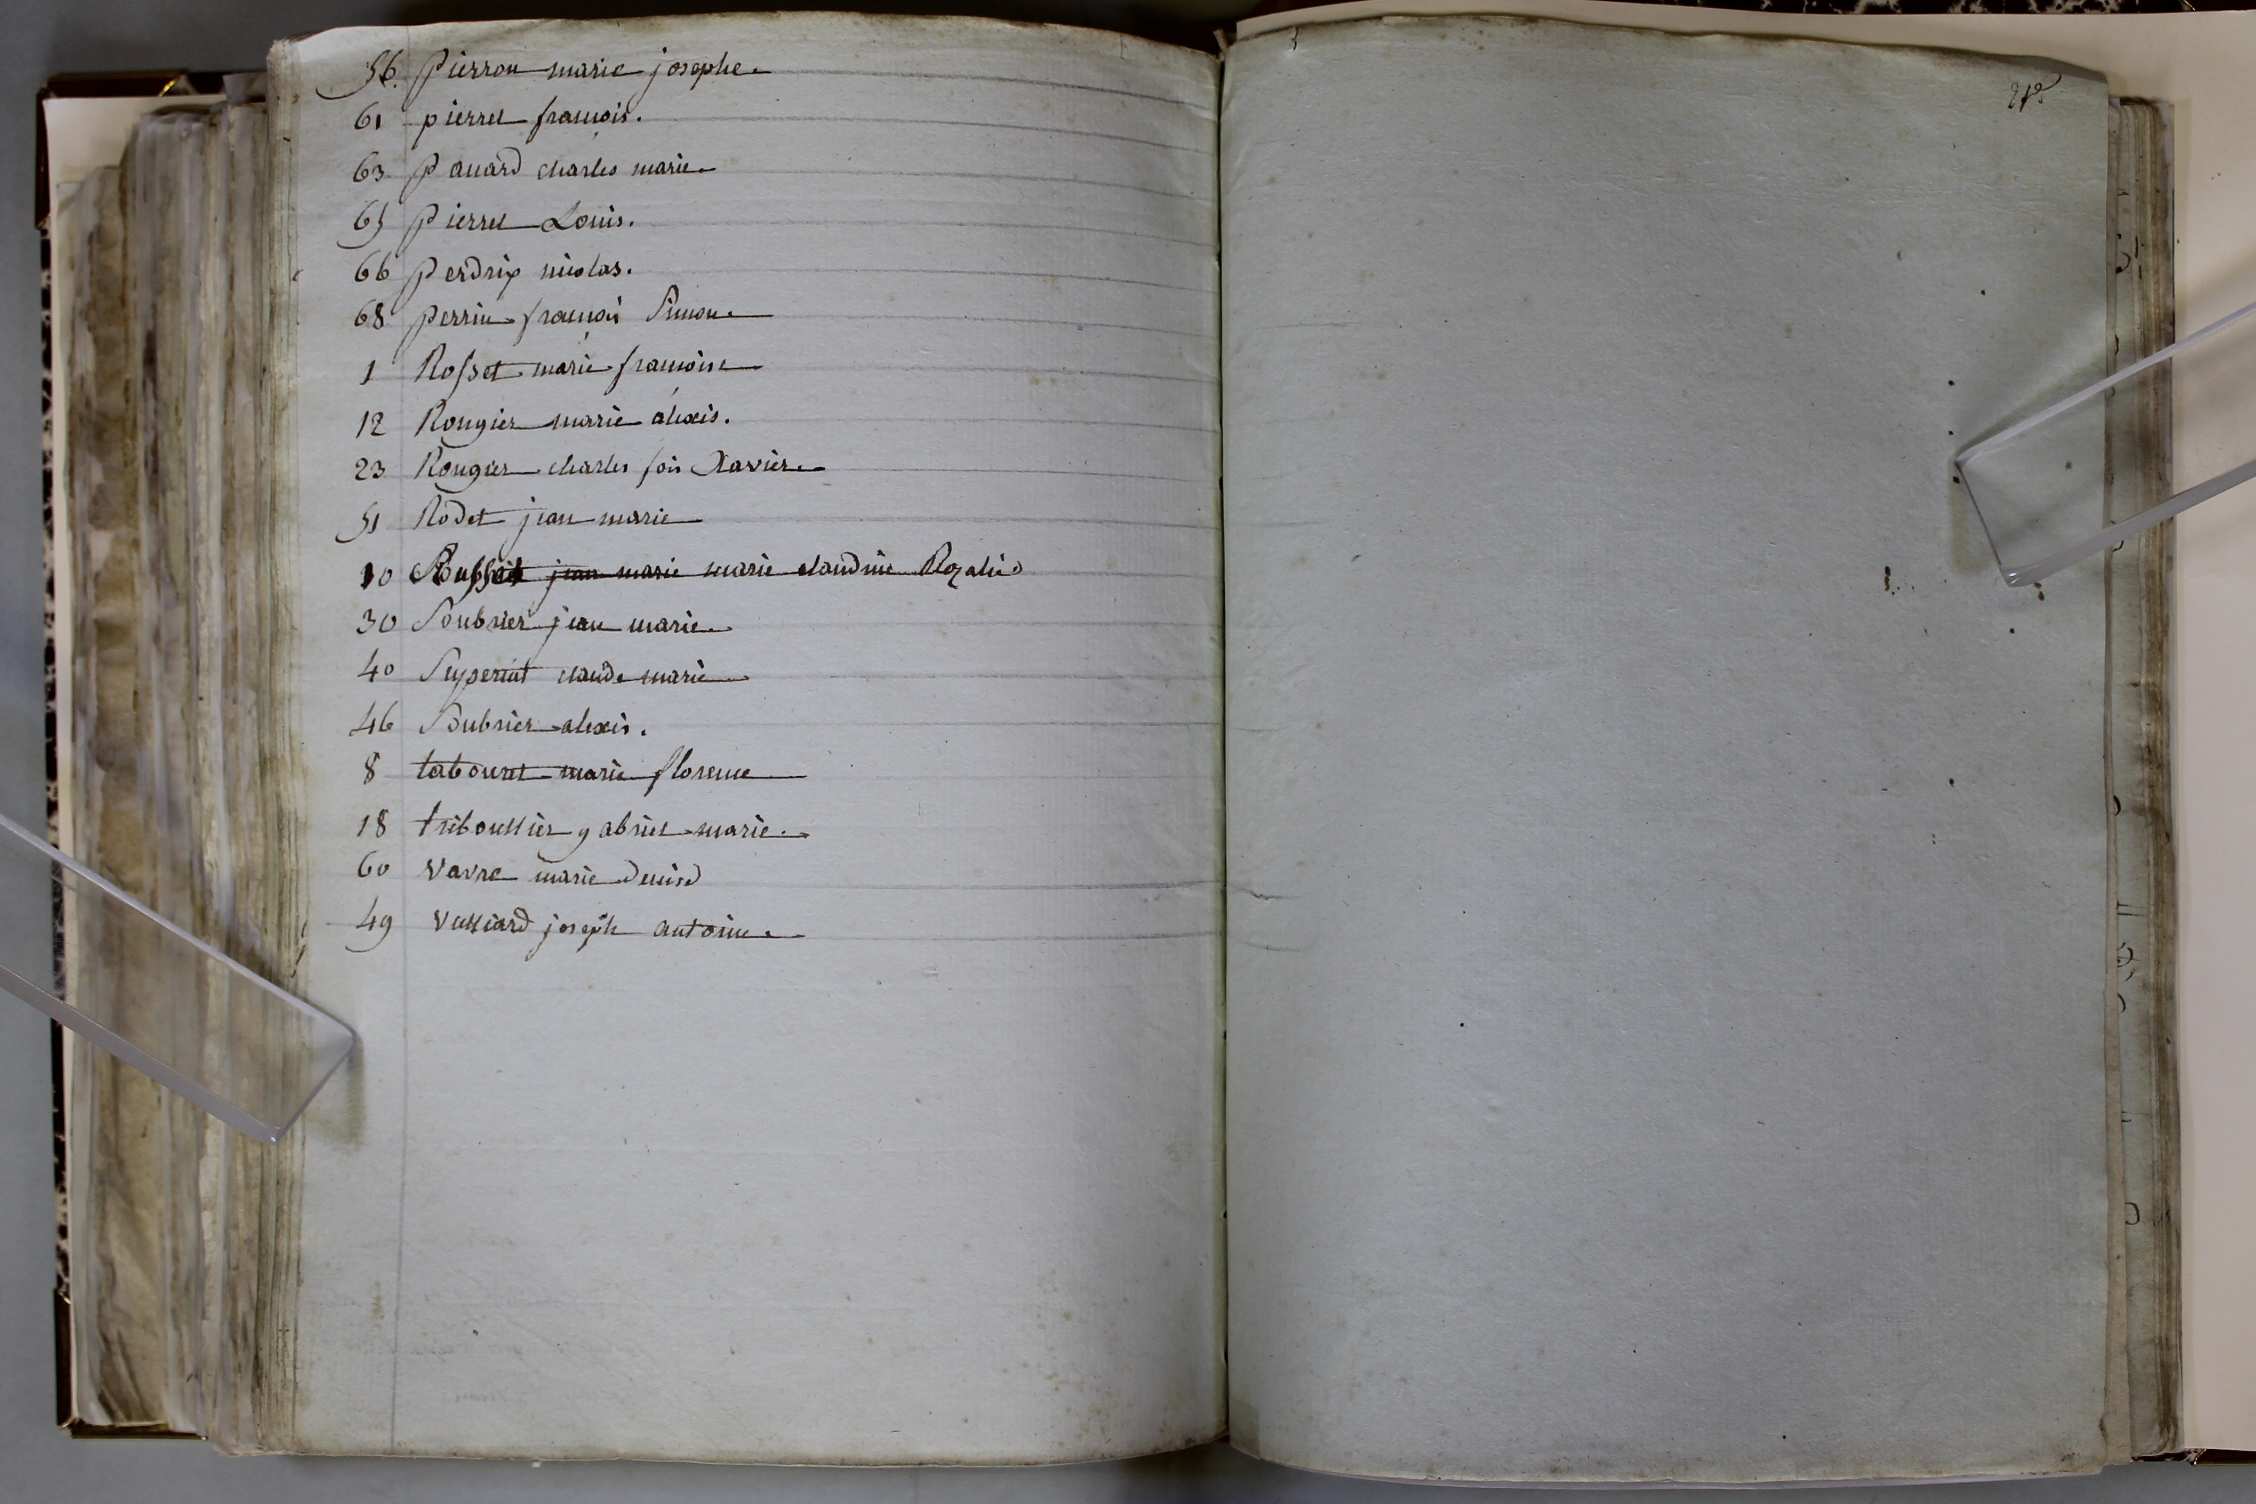 56. Pierron marie josephe.
61 pierret francois.
63 Panard charles marie.
65 Pierret Louis.
66 Perdrix nicolas.
68 Perrin francois Simon.
1 Rosset marie francoise
12 Rougier marie alexis.
23 Rougier charles fois Xavier.
51 Rodet jean marie
10 jean marie marie claudine Rozalie
30 Soubrier jean marie.
40 Syperiat claude marie
46 Soubrier alexis.
8 tabouret marie florence
18 triboullier gabriel marie.
60 Vavre marie denise
49 Vulliard joseph antoine.